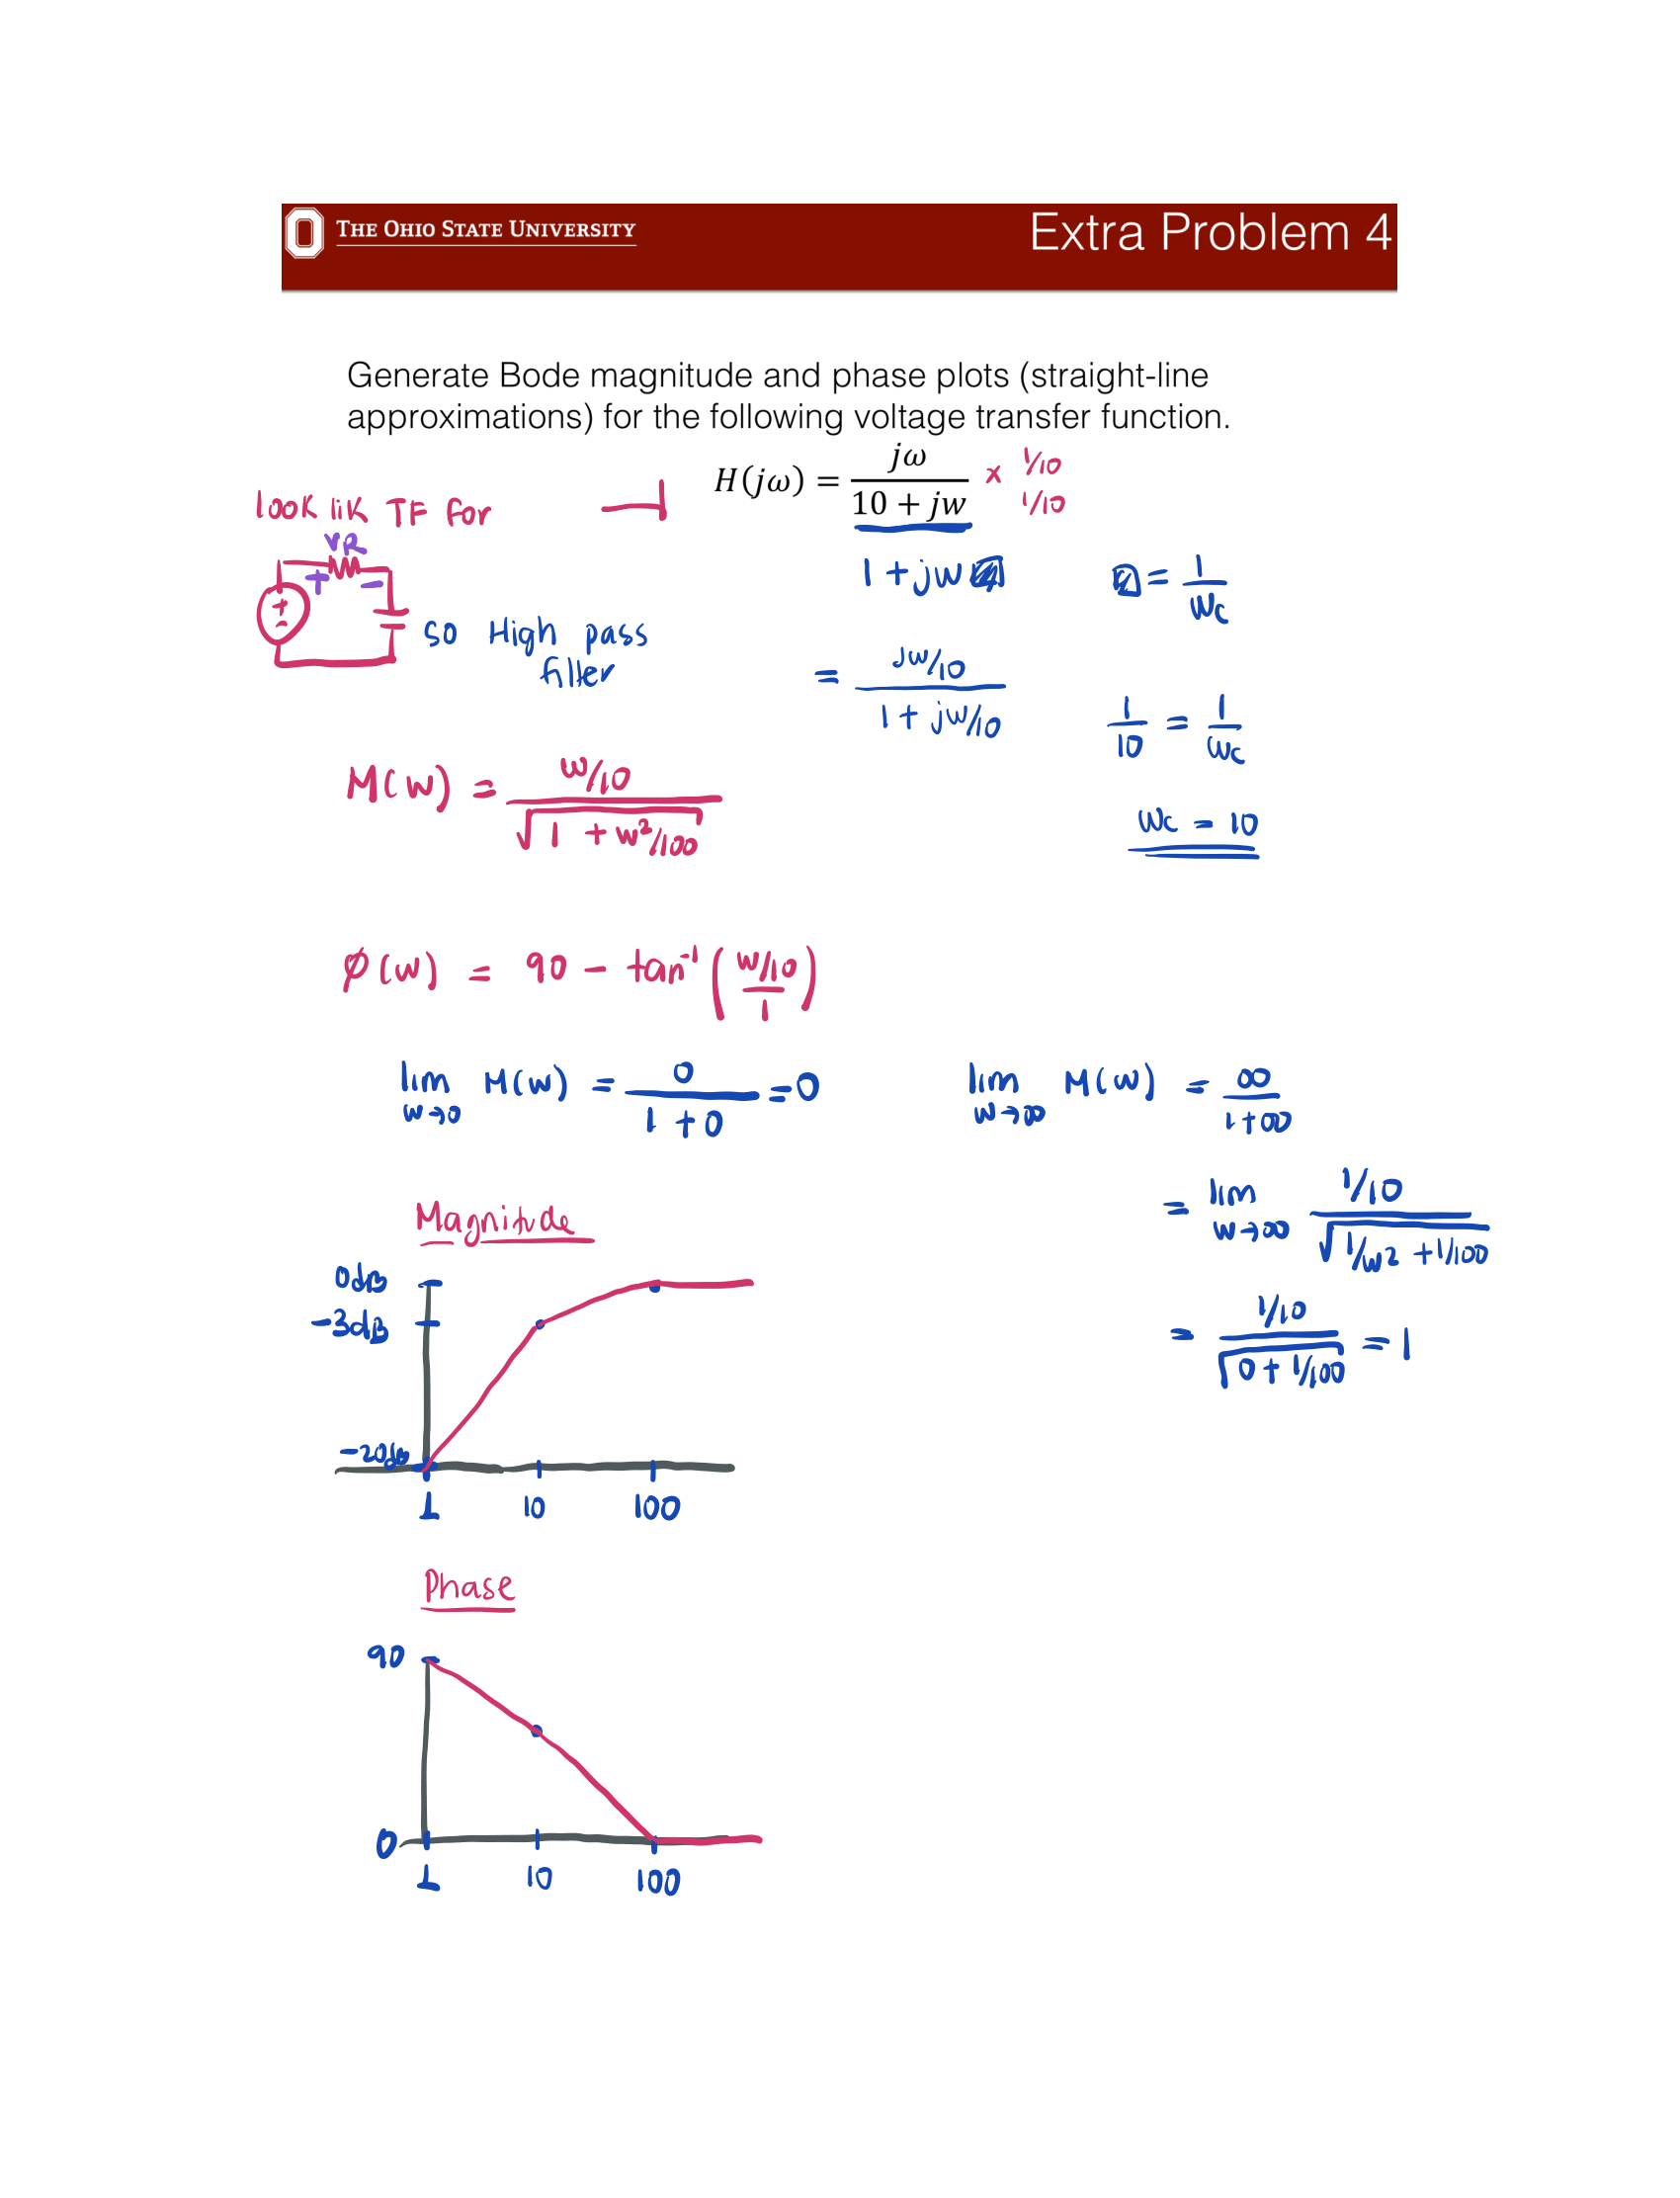 THE OHIO STATE UNIVERSITY
Extra Problem 4
Generate Bode magnitude and phase plots (straight-line
approximations) for the following voltage transfer function.
H(jω) = jω / (10 + jw) x (1/10) / (1/10)
look lik TF for
VR
+ −
+
-
so High pass
filter
1 + jw
= 1/wc
= (jw/10) / (1 + jw/10)
1/10 = 1/wc
wc = 10
M(w) = (w/10) / √(1 + w²/100)
Ø(w) = 90 − tan⁻¹ ((w/10) / 1)
lim w→0 M(w) = 0 / (1 + 0) = 0
lim w→∞ M(w) = ∞ / (1+∞)
= lim w→∞ (1/10) / √(1/w² + 1/100)
= (1/10) / √(0 + 1/100) = 1
Magnitude
0dB
−3dB
−20dB
1 10 100
Phase
90
0
1 10 100